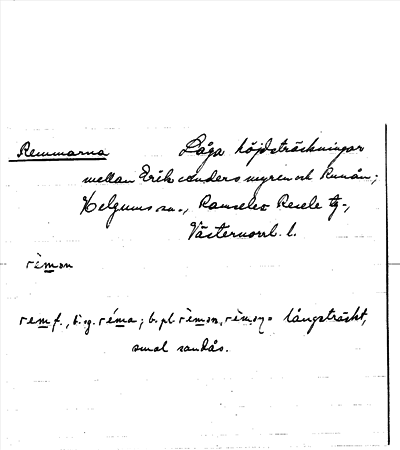 Remmarna Låga höjdsträckningar
mellan Erik Andersmyren och Runån;
Helgums sn., Ramsele o Resele tg.,
Västernorrl. l.
rèmon
rem f., b. sg. réma; b. pl. rèmon, = långsträckt,
smal sandås.